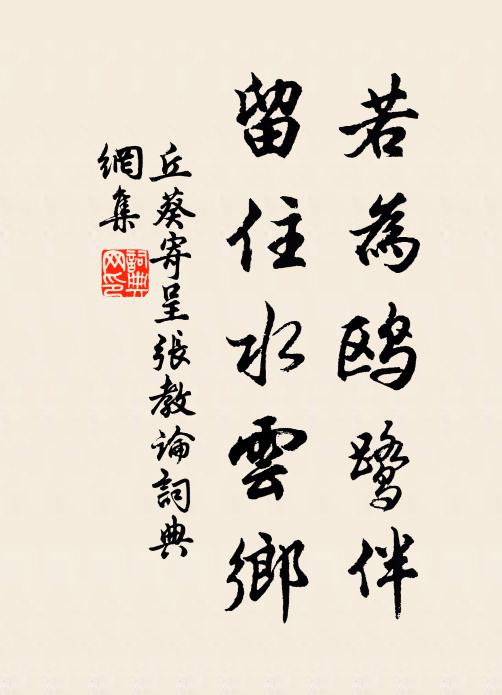 若為鸥鹭伴
留住水雲鄉
丘葵寄呈張教論詞典
網集
詞典
网印